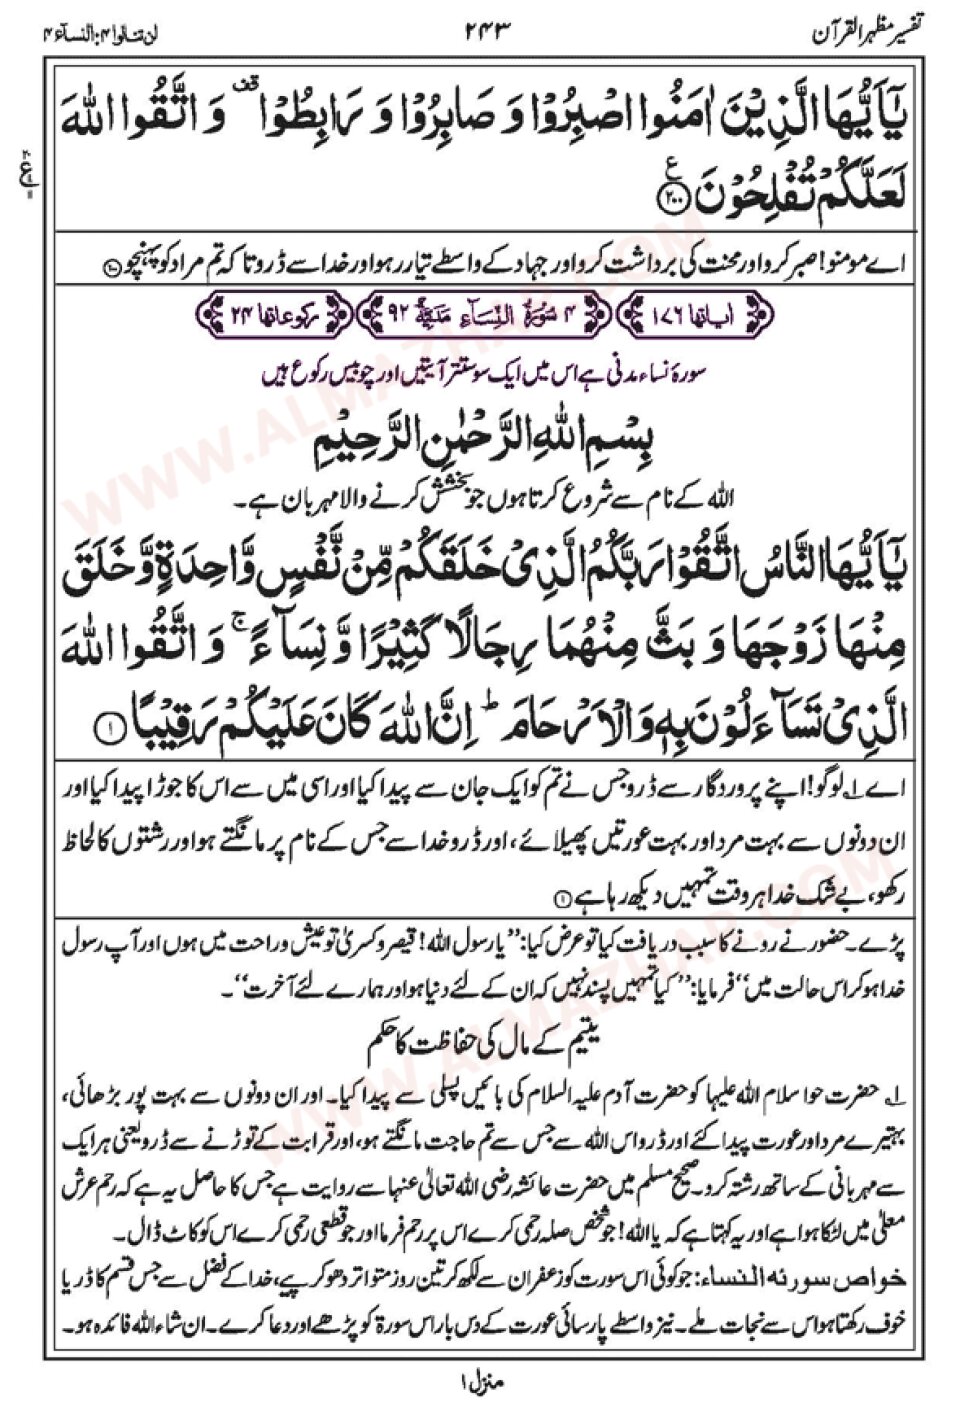 تفسیر مظہر القرآن
۲۴۳
لن تنالوا ۴: النسآء ۴
یٰۤاَیُّهَا الَّذِیْنَ اٰمَنُوا اصْبِرُوْا وَ صَابِرُوْا وَ رَابِطُوْا ۫ وَ اتَّقُوا اللّٰهَ
لَعَلَّكُمْ تُفْلِحُوْنَ ۠﴿۲۰۰﴾
اے مومنو! صبر کرو اور محنت کی برداشت کرو اور جہاد کے واسطے تیار رہو اور خدا سے ڈرو تاکہ تم مراد کو پہنچو
اٰیاتها ۱۷۶
۴ سُوْرَةُ النِّسَآءِ مَدَنِیَّةٌ ۹۲
رکوعاتها ۲۴
سورۂ نساء مدنی ہے اس میں ایک سو ستتر آیتیں اور چوبیس رکوع ہیں
بِسْمِ اللّٰهِ الرَّحْمٰنِ الرَّحِیْمِ
اللہ کے نام سے شروع کرتا ہوں جو بخشش کرنے والا مہربان ہے۔
یٰۤاَیُّهَا النَّاسُ اتَّقُوْا رَبَّكُمُ الَّذِیْ خَلَقَكُمْ مِّنْ نَّفْسٍ وَّاحِدَةٍ وَّ خَلَقَ
مِنْهَا زَوْجَهَا وَ بَثَّ مِنْهُمَا رِجَالًا كَثِیْرًا وَّ نِسَآءً ۚ وَ اتَّقُوا اللّٰهَ
الَّذِیْ تَسَآءَلُوْنَ بِهٖ وَ الْاَرْحَامَ ؕ اِنَّ اللّٰهَ كَانَ عَلَیْكُمْ رَقِیْبًا ﴿۱﴾
اے ۱؎ لوگو! اپنے پروردگار سے ڈرو جس نے تم کو ایک جان سے پیدا کیا اور اسی میں سے اس کا جوڑا پیدا کیا اور
ان دونوں سے بہت مرد اور بہت عورتیں پھیلائے، اور ڈرو خدا سے جس کے نام پر مانگتے ہو اور رشتوں کا لحاظ
رکھو، بے شک خدا ہر وقت تمہیں دیکھ رہا ہے ﴿۱﴾
پڑے۔ حضور نے رونے کا سبب دریافت کیا تو عرض کیا: ”یا رسول اللہ! قیصر و کسریٰ تو عیش و راحت میں ہوں اور آپ رسول
خدا ہو کر اس حالت میں“ فرمایا: ”کیا تمہیں پسند نہیں کہ ان کے لئے دنیا ہو اور ہمارے لئے آخرت“۔
یتیم کے مال کی حفاظت کا حکم
۱؎ حضرت حوا سلام اللہ علیہا کو حضرت آدم علیہ السلام کی بائیں پسلی سے پیدا کیا۔ اور ان دونوں سے بہت پور بڑھائی،
بہتیرے مرد اور عورت پیدا کئے اور ڈرو اس اللہ سے جس سے تم حاجت مانگتے ہو، اور قرابت کے توڑنے سے ڈرو یعنی ہر ایک
سے مہربانی کے ساتھ رشتہ کرو۔ صحیح مسلم میں حضرت عائشہ رضی اللہ تعالیٰ عنہا سے روایت ہے جس کا حاصل یہ ہے کہ رحم عرش
معلیٰ میں لٹکا ہوا ہے اور یہ کہتا ہے کہ یا اللہ! جو شخص صلہ رحمی کرے اس پر رحم فرما اور جو قطعی رحمی کرے اس کو کاٹ ڈال۔
خواص سورئہ النساء: جو کوئی اس سورت کو زعفران سے لکھ کر تین روز متواتر دھو کر پیے، خدا کے فضل سے جس قسم کا ڈر یا
خوف رکھتا ہو اس سے نجات ملے۔ نیز واسطے پارسائی عورت کے دس بار اس سورۃ کو پڑھے اور دعا کرے۔ ان شاء اللہ فائدہ ہو۔
منزل ۱
WWW.ALMAZHAR.COM
WWW.ALMAZHAR.COM